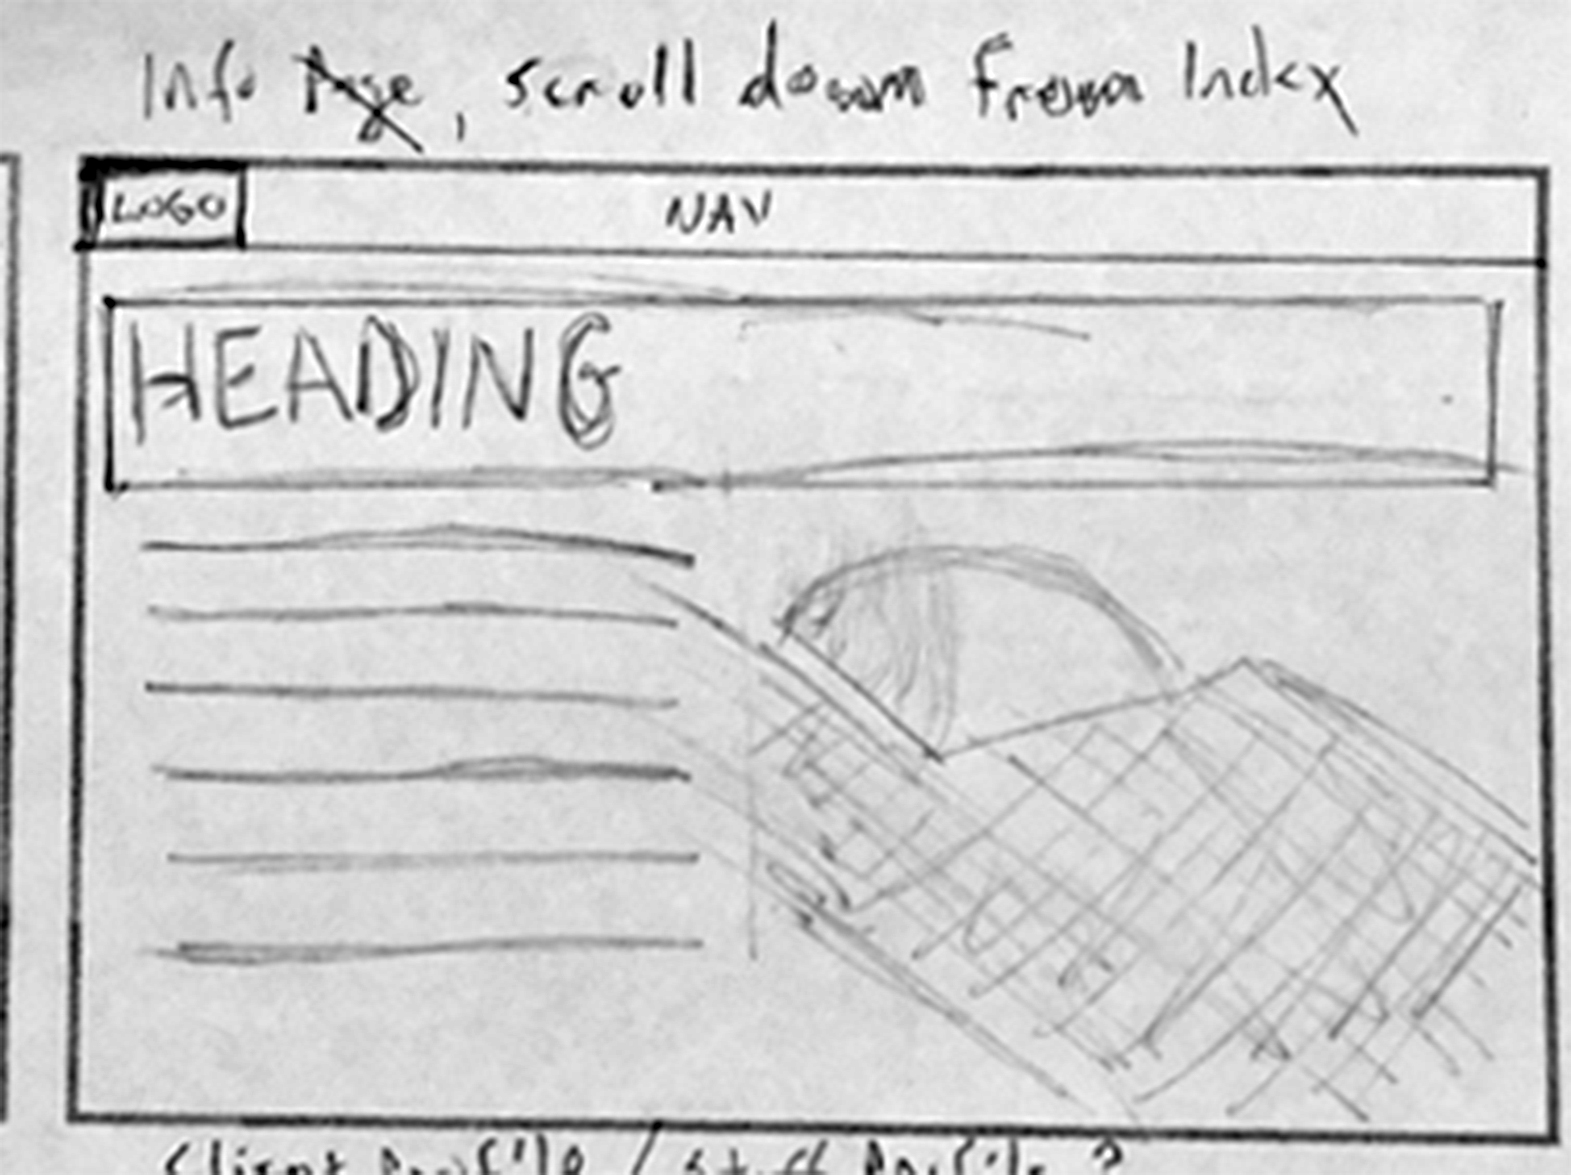 Info Page, scroll down From Index
LOGO
NAV
HEADING
Client Profile / Staff Profile ?